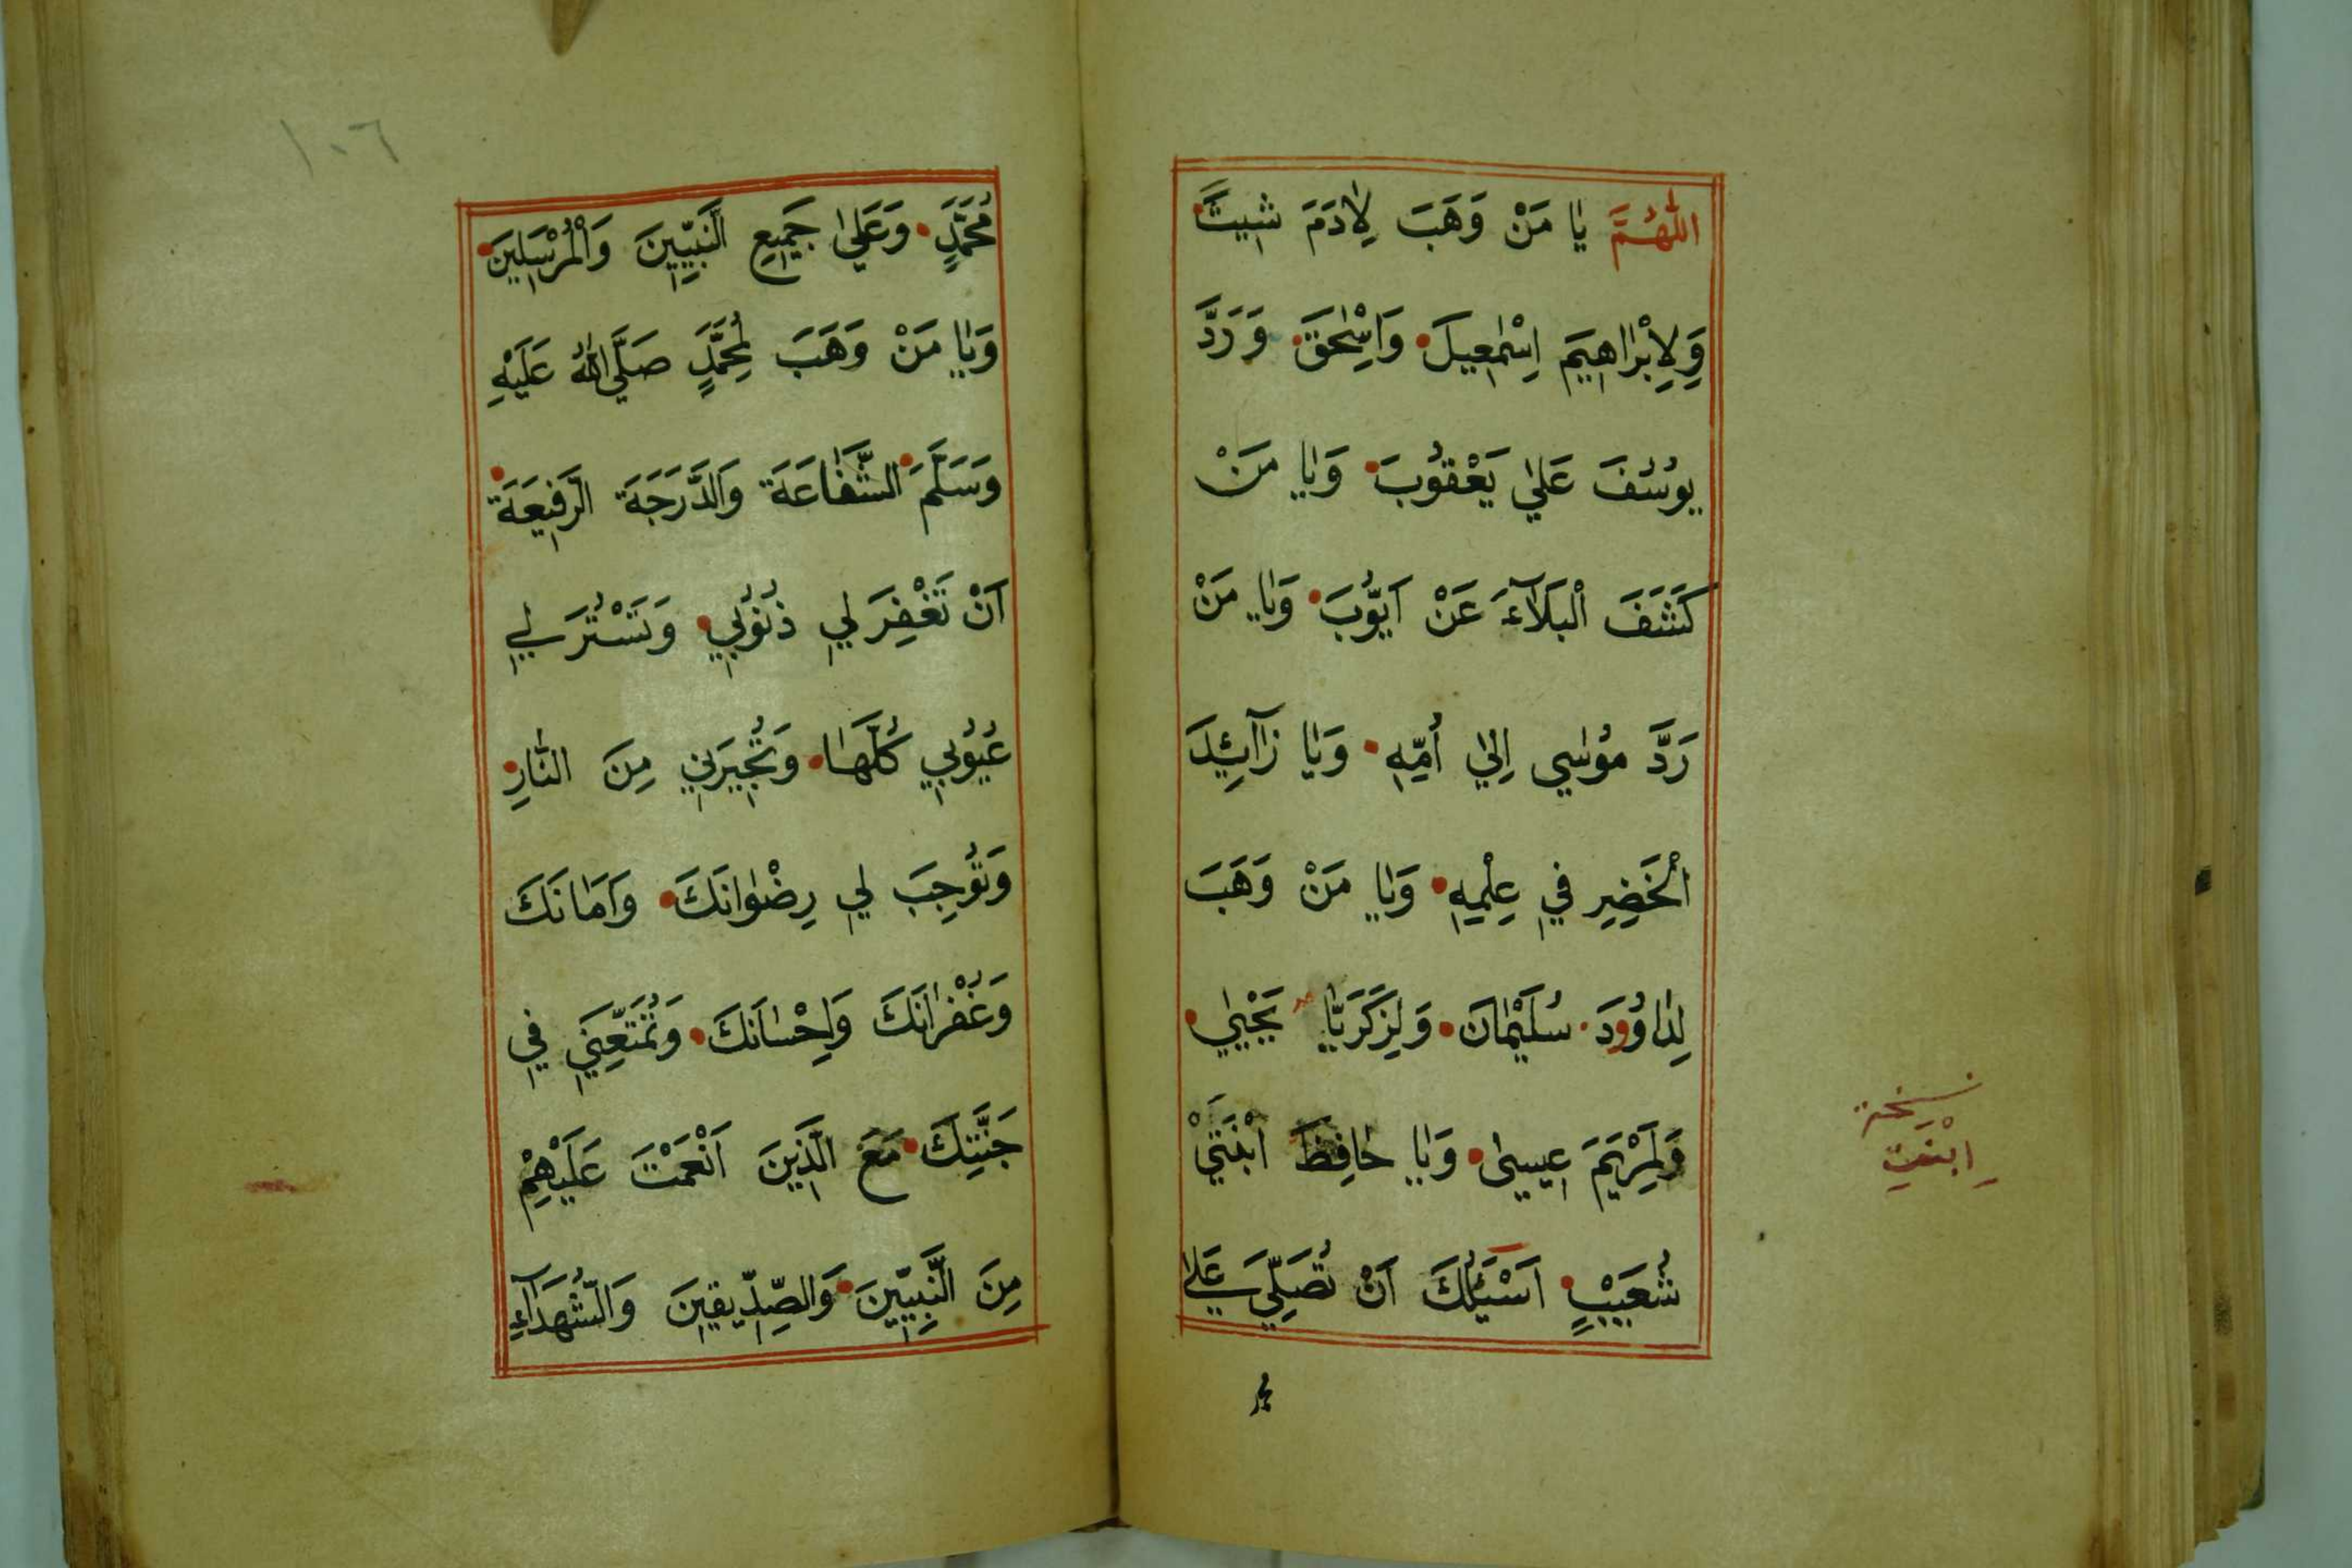 اَللّٰهُمَّ يَا مَنْ وَهَبَ لِاٰدَمَ شِيثَ
وَلِاِبْرَاهِيمَ اِسْمٰعِيلَ وَاِسْحٰقَ وَرَدَّ
يُوسُفَ عَلٰي يَعْقُوبَ وَيَا مَنْ
كَشَفَ الْبَلَآءَ عَنْ اَيُّوبَ وَيَا مَنْ
رَدَّ مُوسٰي اِلٰي اُمِّهِ وَيَا زَآئِدَ
الْخَضِرِ فِي عِلْمِهِ وَيَا مَنْ وَهَبَ
لِدَاوُودَ سُلَيْمٰانَ وَلِزَكَرِيَّا يَحْيٰي
وَلِمَرْيَمَ عِيسٰي وَيَا حَافِظَ ابْنَتَيْ
شُعَيْبٍ اَسْئَلُكَ اَنْ تُصَلِّيَ عَلٰي
نسخة
ابْنَتِ
١٠٦
مُحَمَّدٍ وَعَلٰي جَمِيعِ النَّبِيِّينَ وَالْمُرْسَلِينَ
وَيَا مَنْ وَهَبَ لِمُحَمَّدٍ صَلَّى اللّٰهُ عَلَيْهِ
وَسَلَّمَ الشَّفَاعَةَ وَالدَّرَجَةَ الرَّفِيعَةَ
اَنْ تَغْفِرَ لِي ذُنُوبِي وَتَسْتُرَ لِي
عُيُوبِي كُلَّهَا وَتُجِيرَنِي مِنَ النَّارِ
وَتُوجِبَ لِي رِضْوَانَكَ وَاَمَانَكَ
وَغُفْرَانَكَ وَاِحْسَانَكَ وَتُمَتِّعَنِي فِي
جَنَّتِكَ مَعَ الَّذِينَ اَنْعَمْتَ عَلَيْهِمْ
مِنَ النَّبِيِّينَ وَالصِّدِّيقِينَ وَالشُّهَدَآءِ